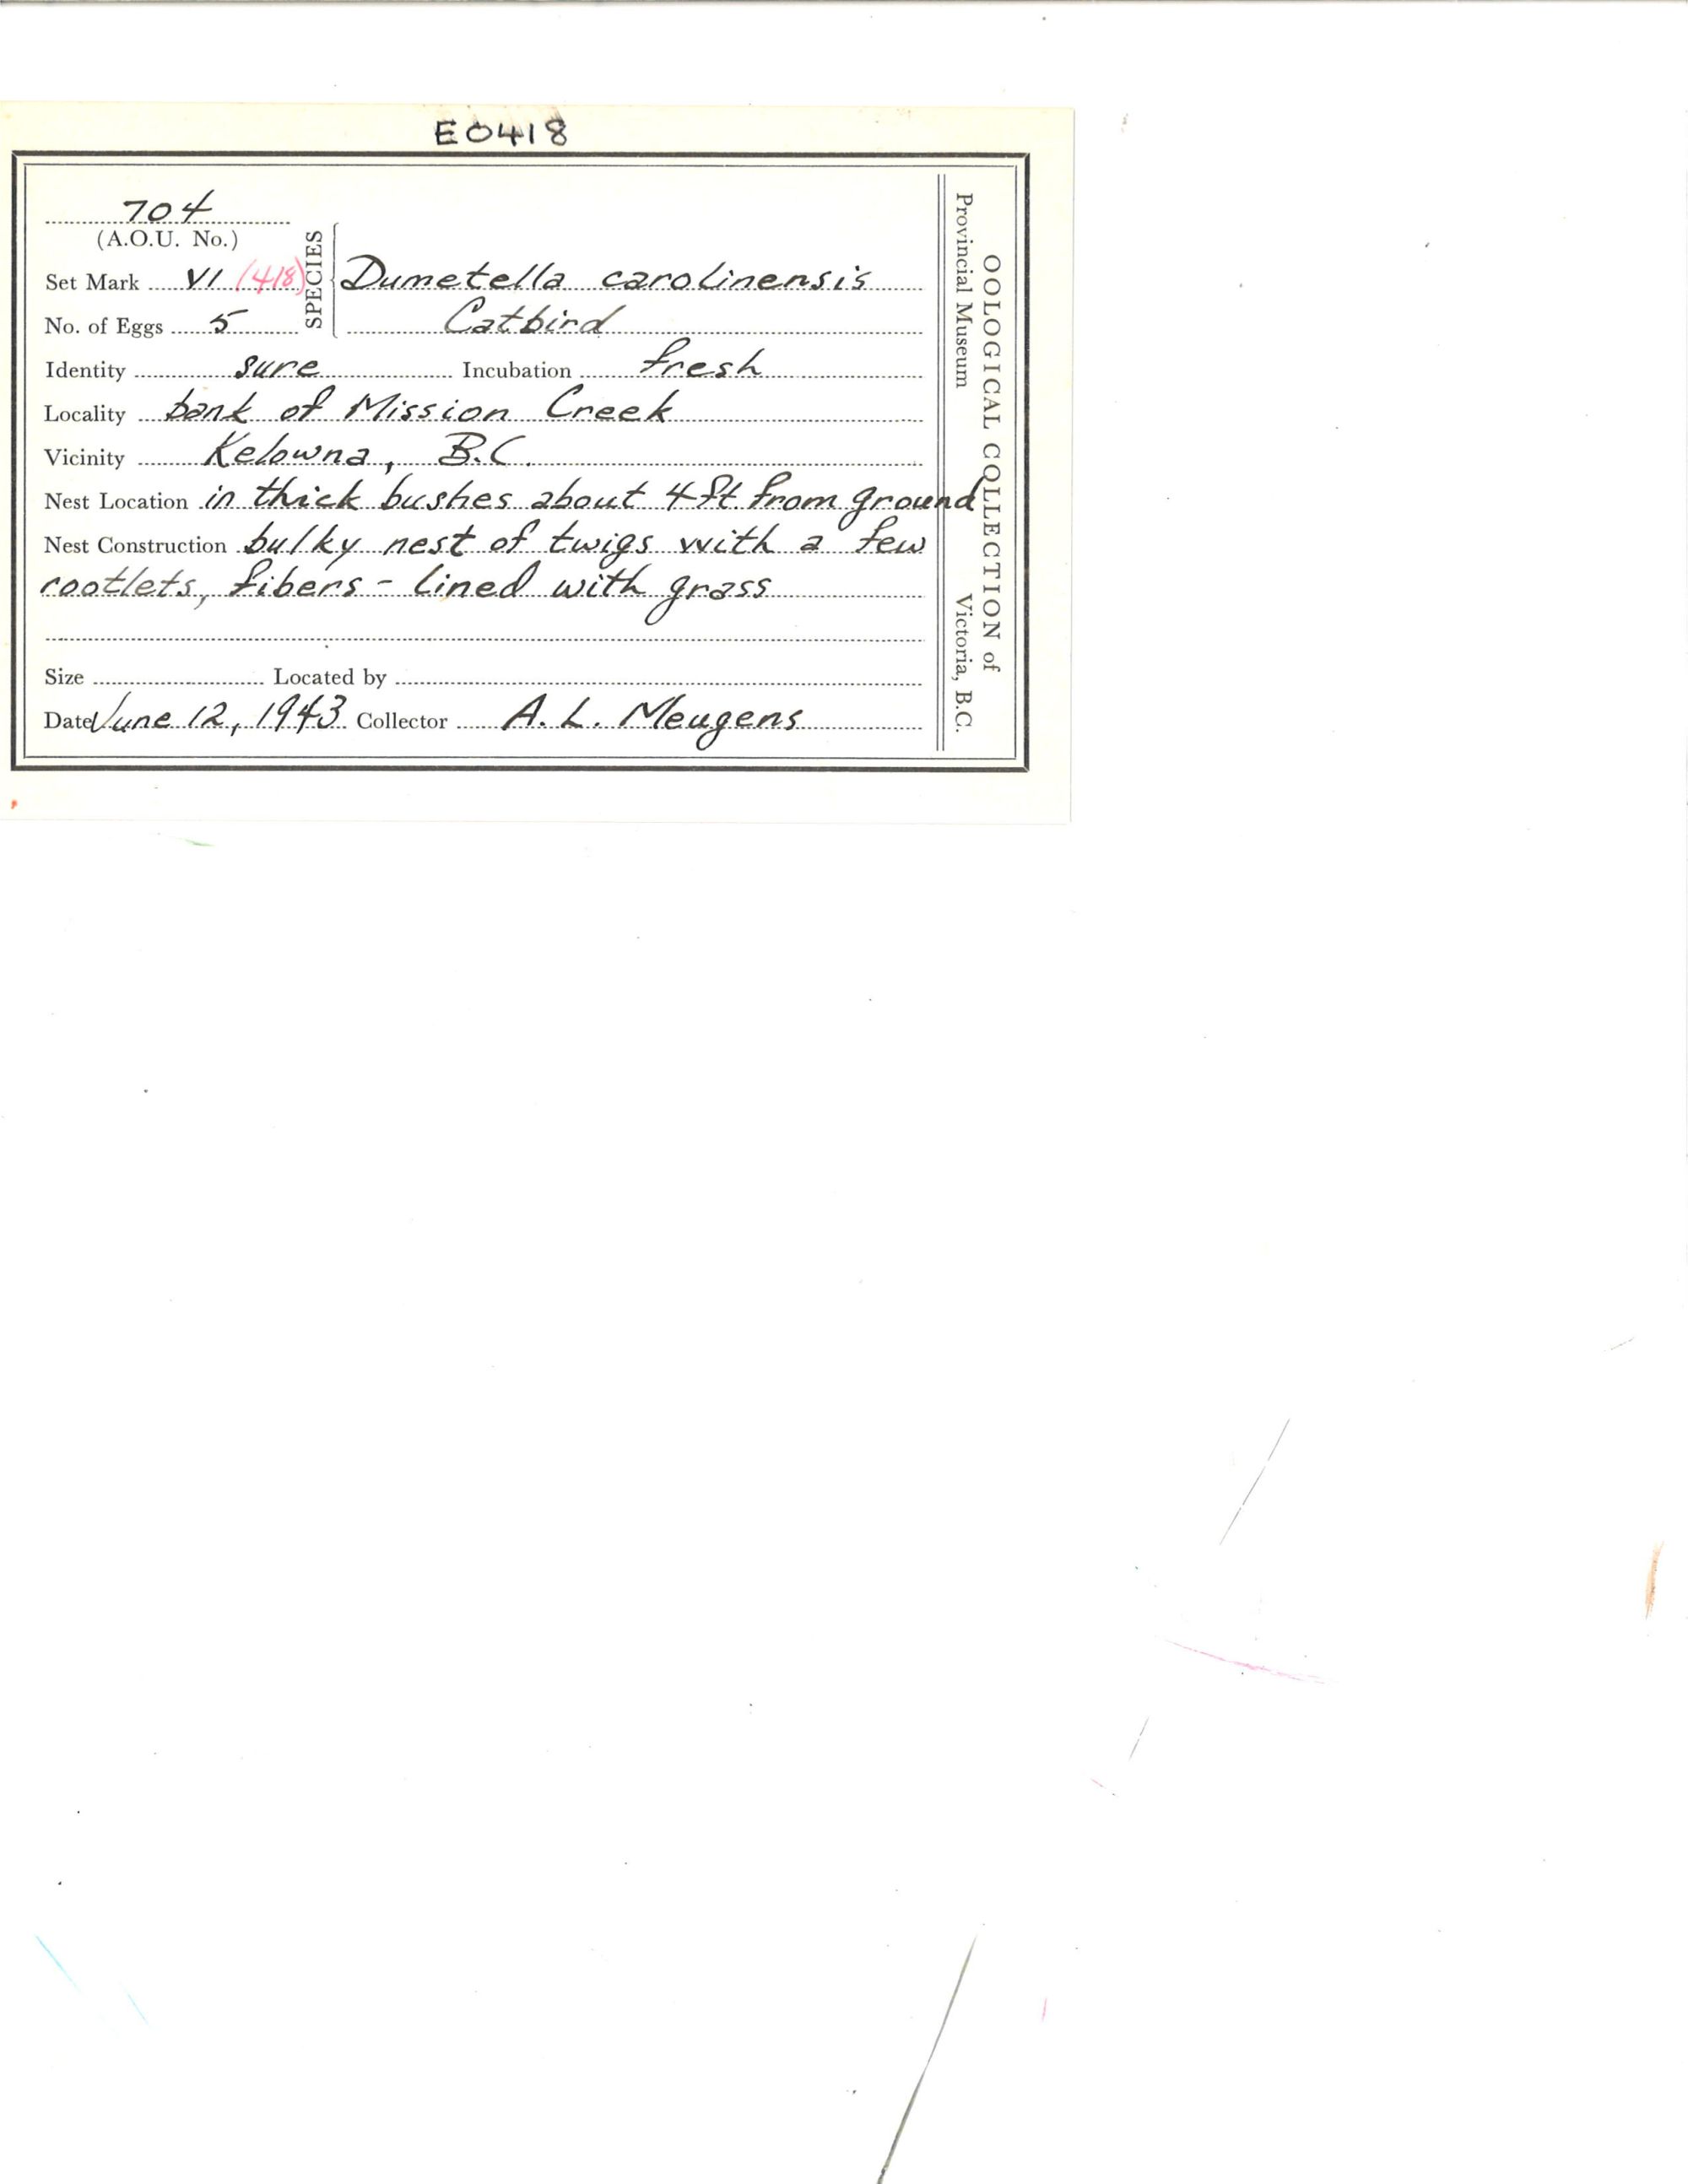 E0418
704
(A.O.U. No.)
SPECIES
Set Mark VI (418) Dumetella carolinensis
No. of Eggs 5 Catbird
Identity sure Incubation fresh
Locality bank of Mission Creek
Vicinity Kelowna, B.C.
Nest Location in thick bushes about 4 ft. from ground
Nest Construction bulky nest of twigs with a few
rootlets, fibers - lined with grass
Size Located by
Date June 12, 1943 Collector A. L. Meugens
OOLOGICAL COLLECTION of
Provincial Museum Victoria, B.C.